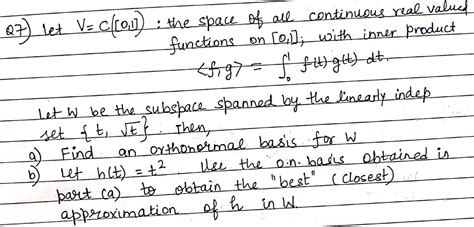 Q7) let V = C([0,1]) : the space of all continuous real valued
functions on [0,1]; with inner product
<f,g> = ∫₀¹ f(t) g(t) dt.
Let W be the subspace spanned by the linearly indep
set {t, √t}. Then,
a) Find an orthonormal basis for W
b) Let h(t) = t². Use the o.n. basis obtained in
part (a) to obtain the "best" (closest)
approximation of h in W.